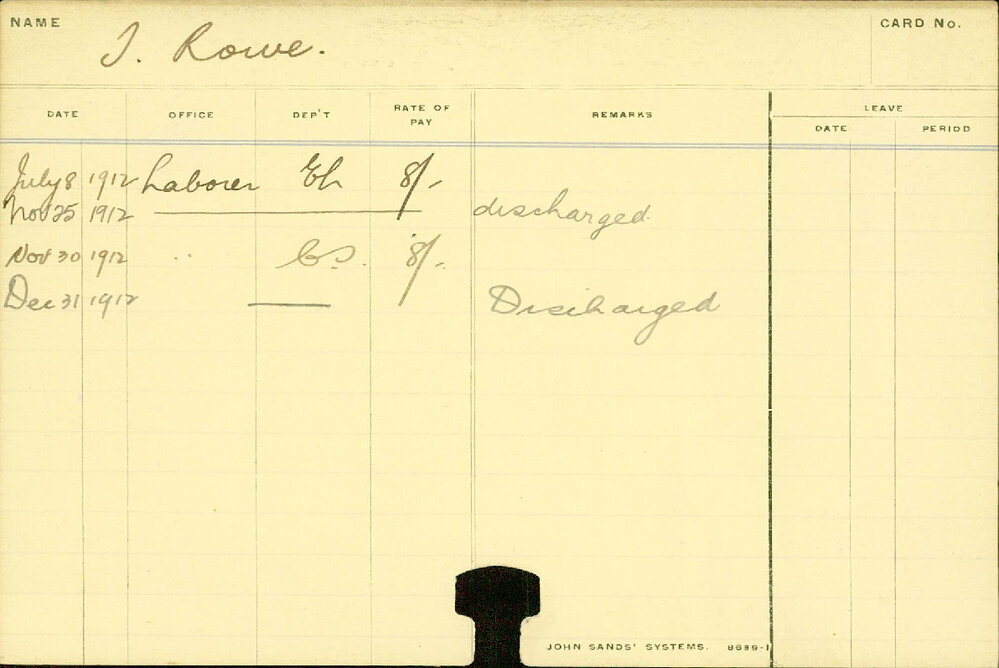 NAME CARD No.
J. Rowe.
DATE OFFICE DEP'T RATE OF PAY REMARKS LEAVE
DATE PERIOD
July 8 1912 Laborer 8/-
Nov 25 1912 discharged
Nov 30 1912 " 8/-
Dec 31 1912 Discharged
JOHN SANDS' SYSTEMS. 8699-1